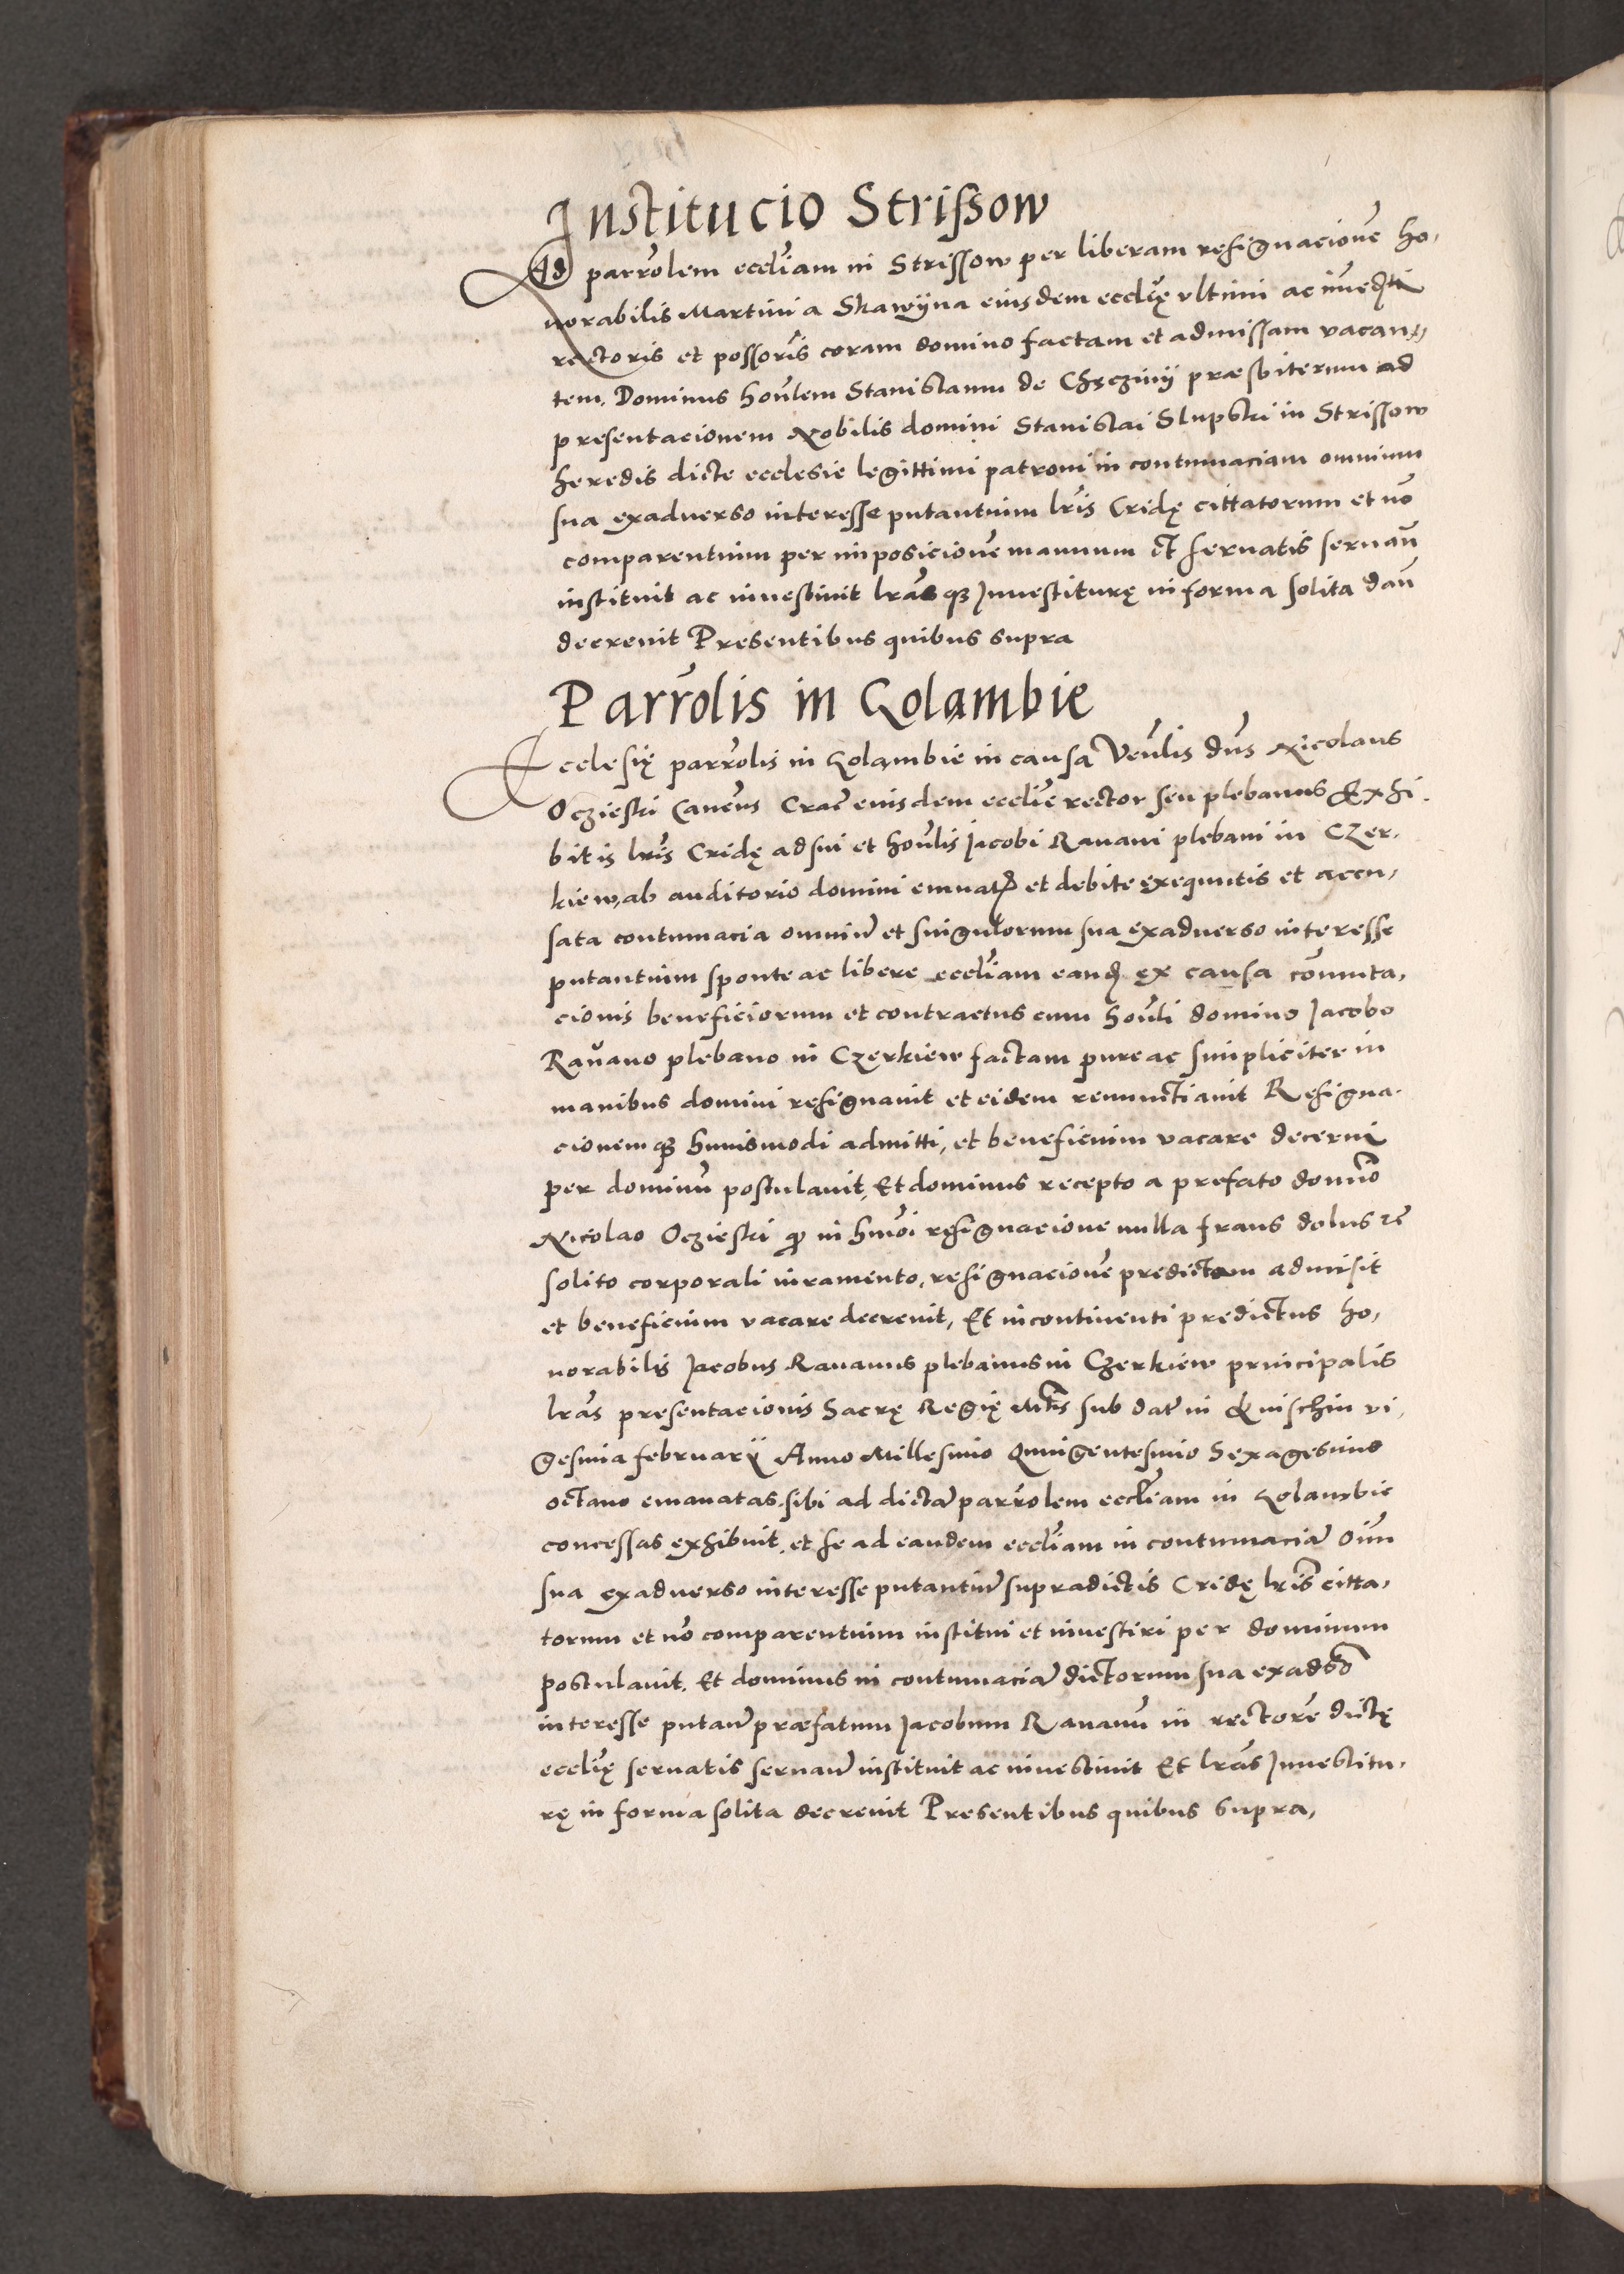 Institucio Strissow
Ad parrolem eccliam in Strissow per liberam resignacionē ho,
norabilis Martini a Skawÿna eiusdem ecclię vltimi ac inuestiti
rectoris et possoris coram domino factam et admissam vacan,
tem, Dominus honlem Stanislaum de Chęcziny præsbiterum ad
presentacionem Nobilis domini Stanislai Slupski in Strissow
heredis dicte ecclesie legittimi patroni in contumaciam omnium
sua exaduerso interesse putantium lris Cridę cittatorum et nō
comparentium per imposicionē manuum et seruatis seruań
instituit ac inuestiuit lrasq3 Inuestiturę in forma solita dań
decreuit Presentibus quibus supra
Parrolis in Golambie
Ecclesię parrolis in Golambie in causa Venlis dns Nicolaus
Oczieski Canōus Crac̄ euisdem ecclie rector seu plebanus Exhi,
bitis lris Cridę ad sui et honlis Jacobi Rauani plebani in Czer,
kiew, ab auditorio domini emanat̄ et debite exequutis et accu,
sata contumacia omniū et singulorum sua exaduerso interesse
putantium sponte ac libere eccliam eand ex causa cōmuta,
cionis beneficiorum et contractus cum honli domino Jacobo
Rauano plebano in Czerkiew factam pure ac simpliciter in
manibus domini resignauit et eidem renunctiauit Resigna,
cionemq3 huiusmodi admitti, et beneficium vacare decerni
per dominū postulauit, Et dominus recepto a prefato domino
Nicolao Oczieski q in hmōi resignacione nulla fraus dolus etc̄
solito corporali iuramento, resignacionē predictam admisit
et beneficium vacare decreuit, Et incontinenti predictus ho,
norabilis Jacobus Rauanus plebanus in Czerkiew principalis
lras presentacionis Sacrę Regię Mtis sub dat̄ in Knischin vi,
gesima februarÿ Anno Millesimo Quingentesimo Sexagesimo
octauo emanatas, sibi ad dictā parrolem eccliam in Golambie
concessas exhibuit, et se ad eandem eccliam in contumaciā oīm
sua exaduerso interesse putantiū supradictis Cridę lris citta,
torum et nō comparentium institui et inuestiri per dominum
postulauit, Et dominus in contumaciā dictorum sua exadsō
interesse putań præfatum Jacobum Rauanū in rectorē dictę
ecclię seruatis seruań instituit ac inuestiuit Et lras Inuestitu,
rę in forma solita decreuit Presentibus quibus supra,